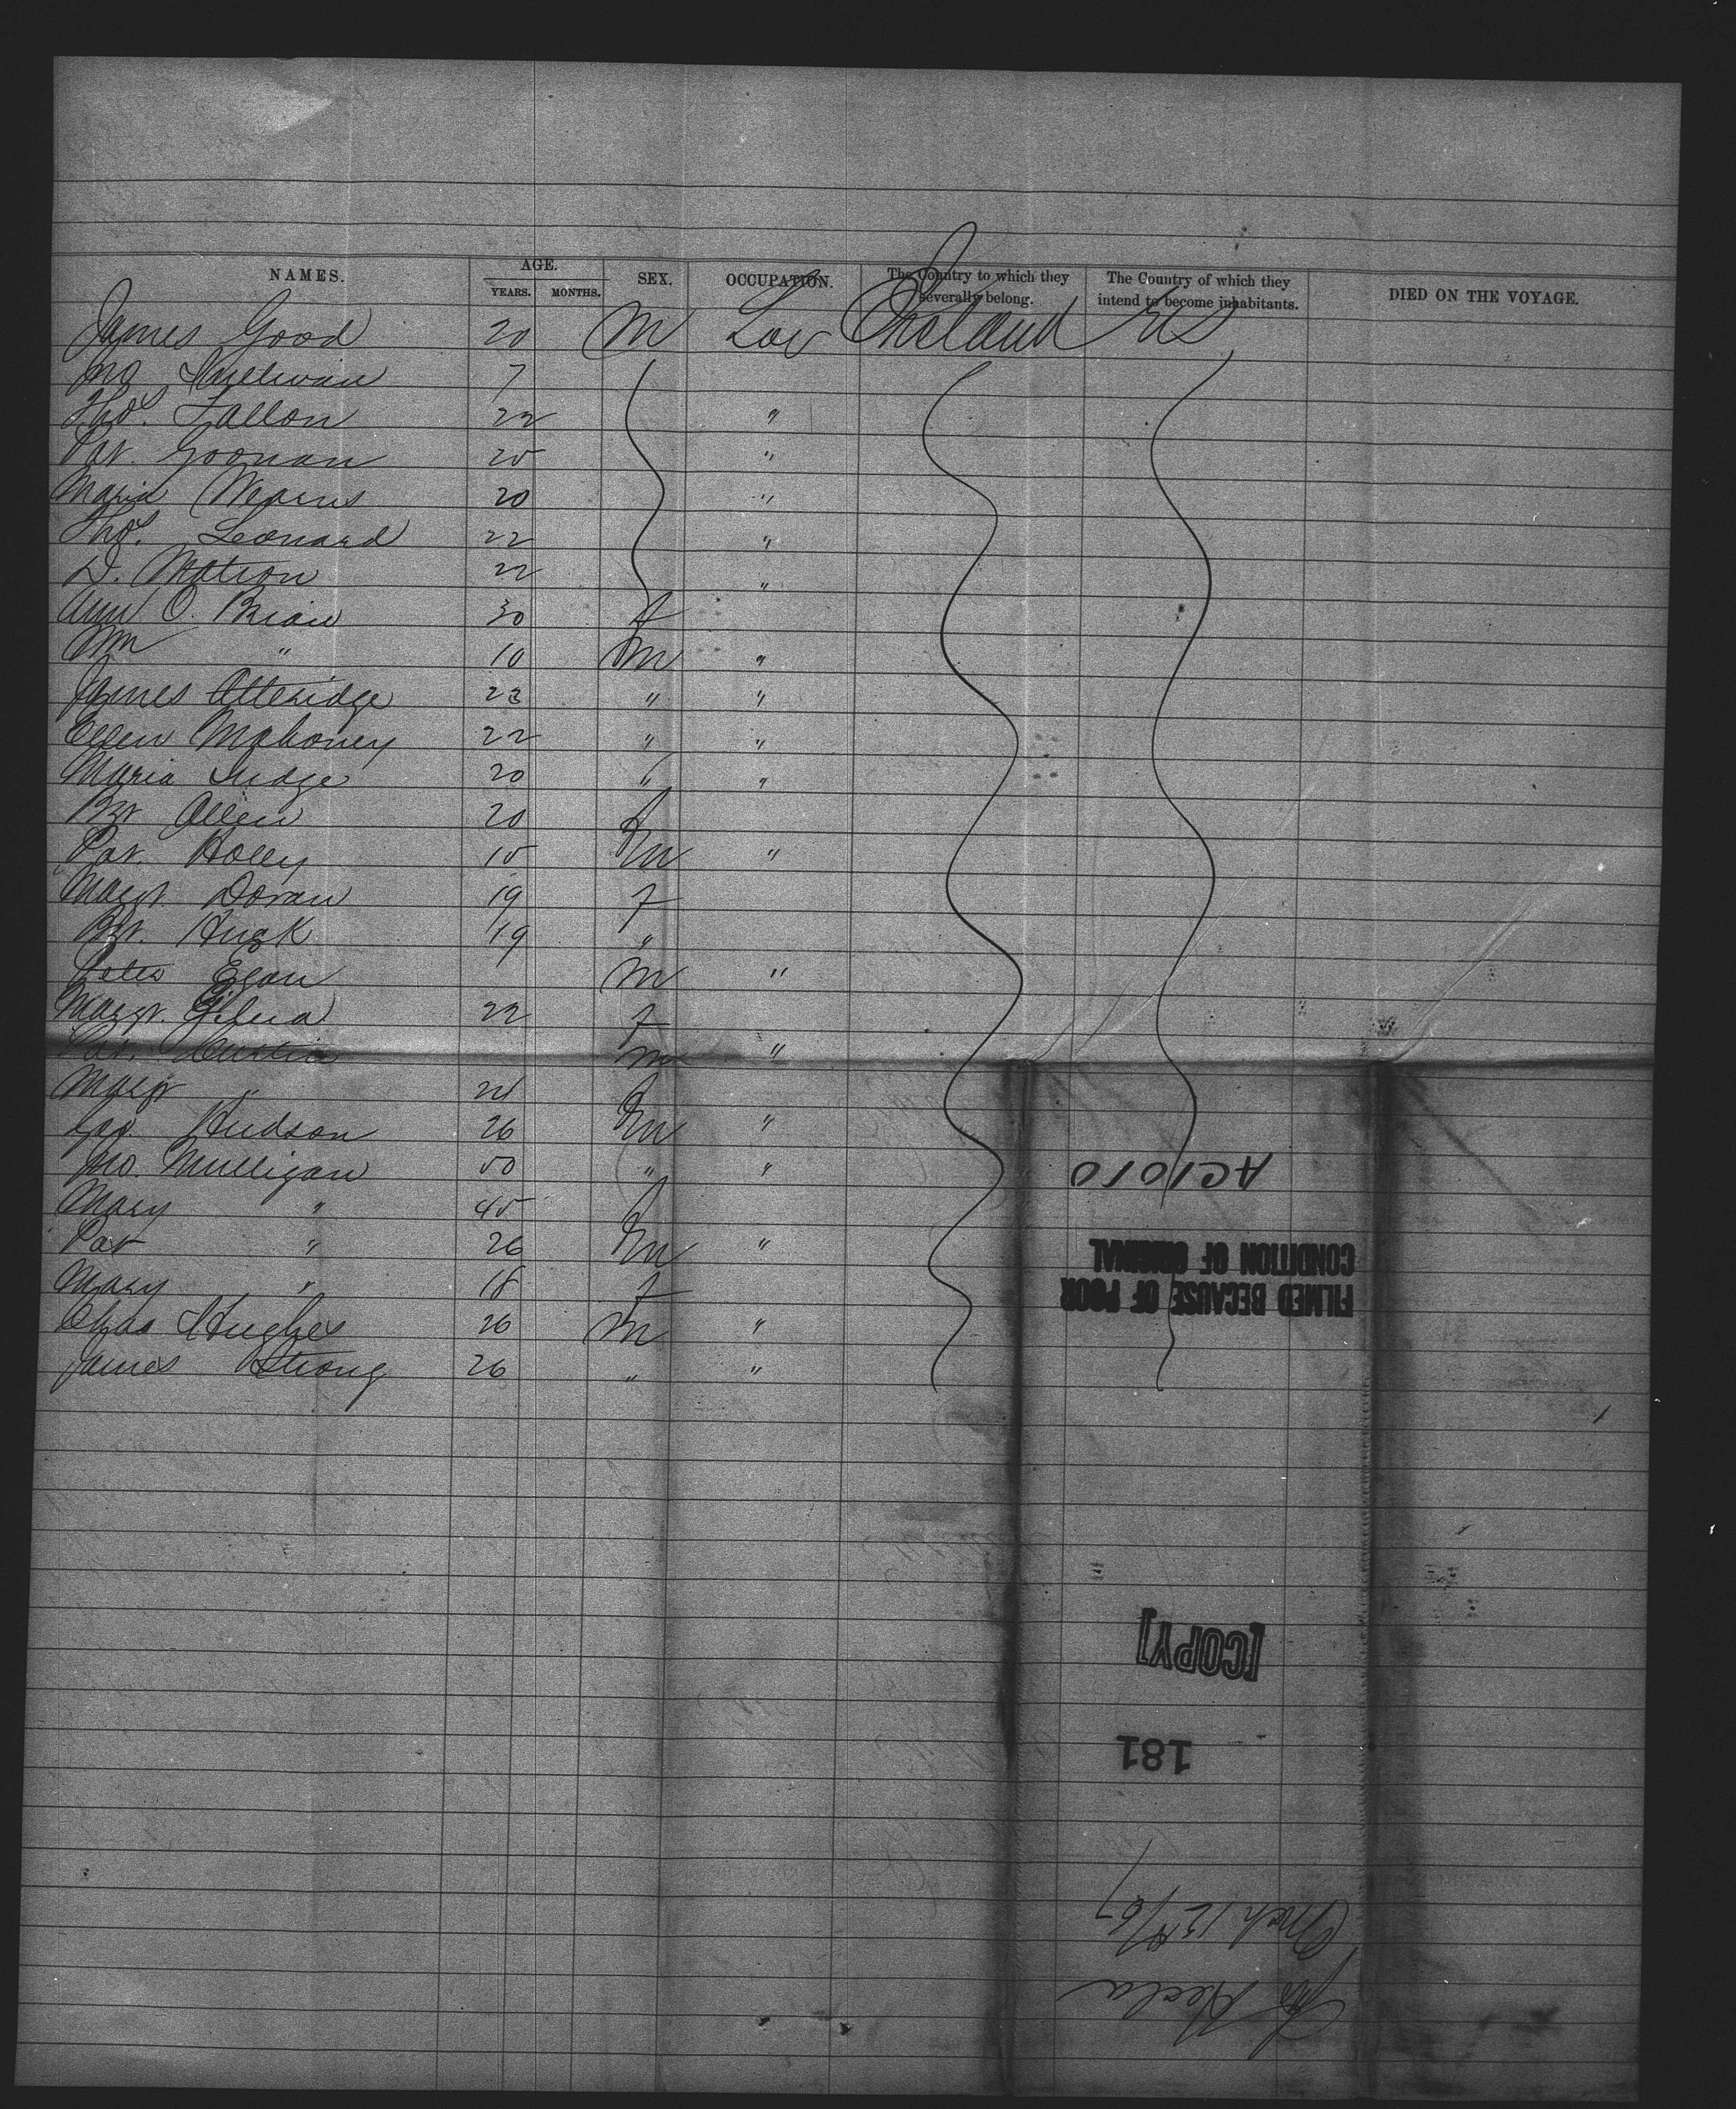 NAMES. AGE. SEX. OCCUPATION. The Country to which they severally belong. The Country of which they intend to become inhabitants. DIED ON THE VOYAGE.
YEARS. MONTHS.
James Good 20 M Lab Ireland US
Jno Sullivan 7
Thos. Fallon 22 "
Pat. Goonan 25 "
Maria 20 "
Thos. Leonard 22 "
D. 22 "
Ann O. Brian 30 f
Wm " 10 M "
James Atteridge 23 " "
Ellen Mahoney 22 " "
Maria Judge 20 " "
Bgt Allen 20 f
Pat. Holly 15 M "
Margt. Doran 19 f
Bgt. 19 "
Peter Egan M "
Margt. 22 f
Pat. M "
Margt " f
Geo. Hudson 26 M "
Jno. Mulligan 50 " "
Mary " 45 f
Pat " 26 M "
Mary " 18 f
Chas Hughes 26 M "
James Strong 26 " "
AC1010
FILMED BECAUSE OF POOR
CONDITION OF ORIGINAL
[COPY]
181
Str Hecla
Mch 12th/67